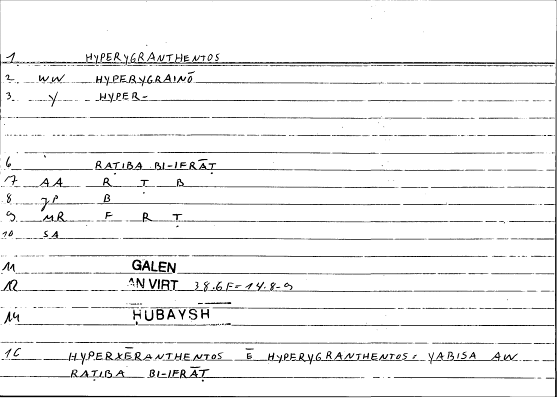 1 HYPERYGRANTHENTOS
2 WW HYPERYGRAINŌ
3 Y HYPER-
6 RAṬIBA BI-IFRĀṬ
7 AA R Ṭ B
8 JP B
9 MR F R Ṭ
10 SA
11 GALEN
12 AN VIRT 38.6F=14.8-9
14 HUBAYSH
16 HYPERXĒRANTHENTOS Ē HYPERYGRANTHENTOS: YABISA AW
RAṬIBA BI-IFRĀṬ